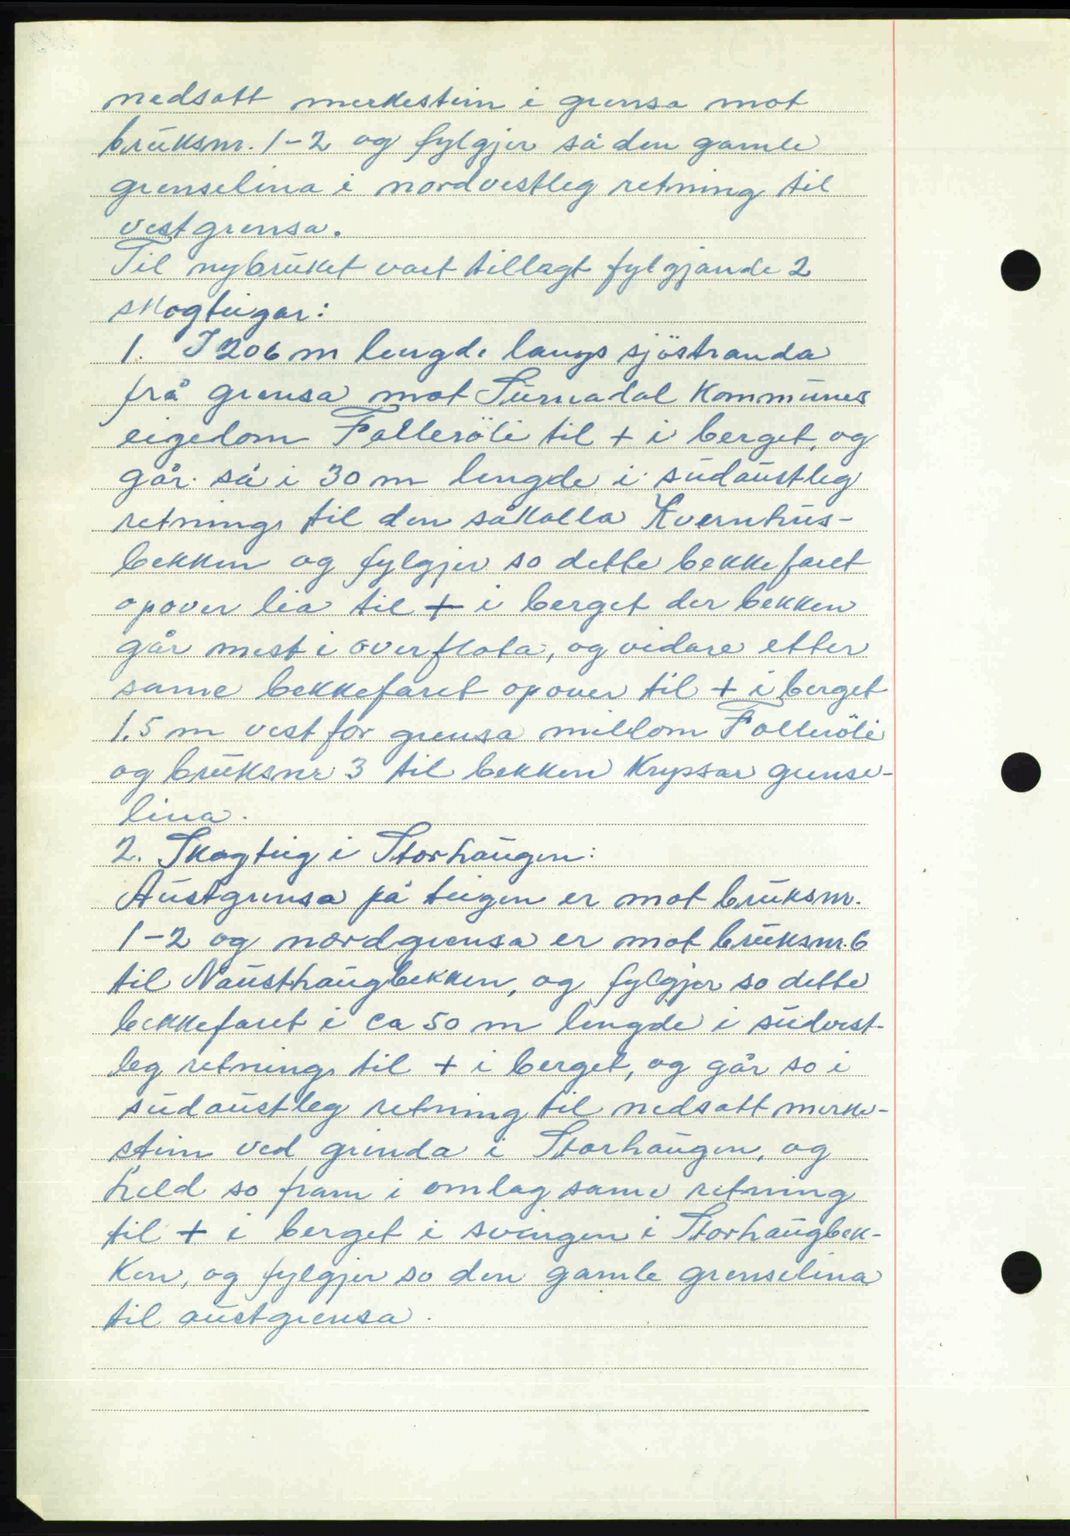 nedsatt merkestein i grensa mot
bruksnr. 1-2 og fylgjer så den gamle
grenselina i nordvestleg retning til
vestgrensa.
Til nybruket vart tillagt fylgjande 2
skogteigar:
1. I 206 m lengde langs sjöstranda
frå grensa mot Surnadal kommunes
eigedom Falleröli til + i berget, og
går så i 30 m lengde i sudaustleg
retning til den såkalla Kvernhus-
bekken og fylgjer so dette bekkefaret
opover lia til + i berget der bekken
går mest i overflata, og vidare etter
same bekkefaret opover til + i berget
1.5 m vest for grensa millom Falleröli
og bruksnr 3 til bekken kryssar grense-
lina.
2. Skogteig i Storhaugen:
Austgrensa på teigen er mot bruksnr.
1-2 og nordgrensa er mot bruksnr. 6
til Nausthaugbekken, og fylgjer so dette
bekkefaret i ca 50 m lengde i sudvest-
leg retning til + i berget, og går so i
sudaustleg retning til nedsatt merke-
stein ved grinda i Storhaugen, og
held so fram i omlag same retning
til + i berget i svingen i Storhaugbek-
ken, og fylgjer so den gamle grenselina
til austgrensa.